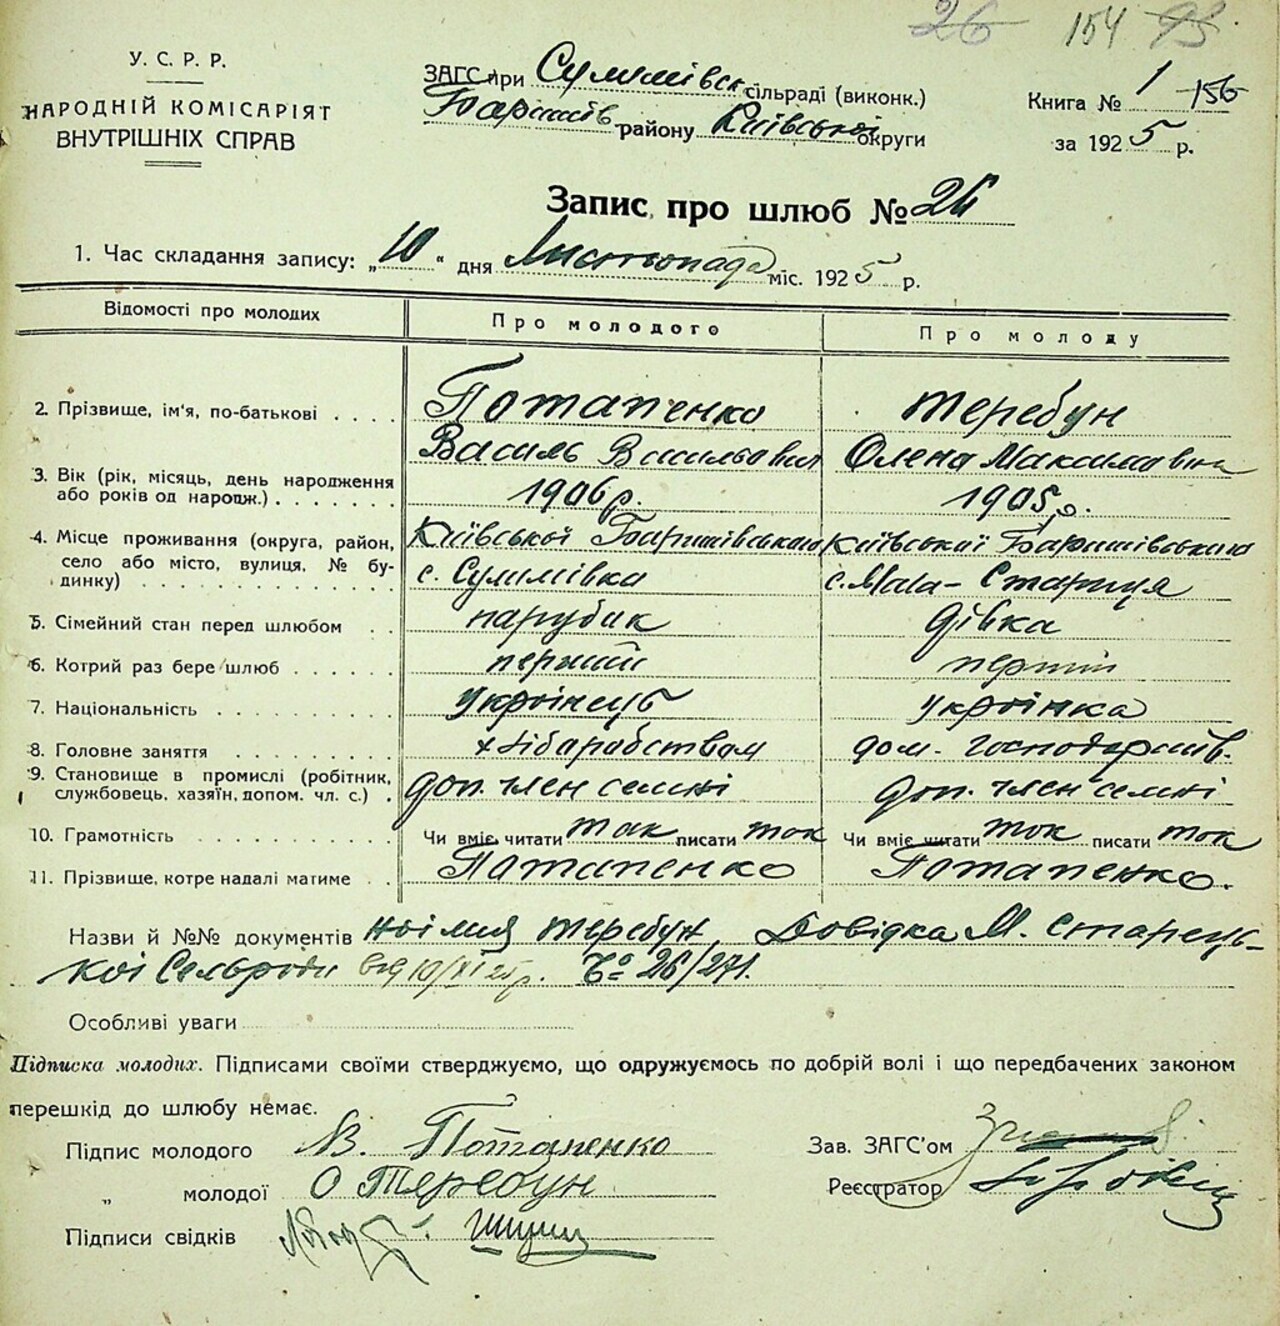 26 154 93
У. С. Р. Р.
НАРОДНІЙ КОМІСАРІЯТ
ВНУТРІШНІХ СПРАВ
ЗАГС при Сулимівск. сільраді (виконк.)
Баришів району Київської округи
Книга № 1 156
за 1925 р.
Запис про шлюб № 26
1. Час складання запису: „10“ дня Листопада міс. 1925 р.
Відомості про молодих Про молодого Про молоду
2. Прізвище, ім'я, по-батькові Потапенко Теребун
Василь Васильович Олена Максимовна
3. Вік (рік, місяць, день народження або років од народж.) 1906 р. 1905 р.
4. Місце проживання (округа, район, Київської Баришівського Київської Баришівського
село або місто, вулиця, № будинку) с. Сулимівка с. Мала-Стариця
5. Сімейний стан перед шлюбом парубик дівка
6. Котрий раз бере шлюб перший перший
7. Національність українець українка
8. Головне заняття хліборобством дом. господарств.
9. Становище в промислі (робітник, службовець, хазяїн, допом. чл. с.) доп. член семні доп. член семні
10. Грамотність Чи вміє читати так писати так Чи вміє читати так писати так
11. Прізвище, котре надалі матиме Потапенко Потапенко.
Назви й №№ документів Теребун Довідка М. Старець-
кої Сельради від 10/XI 25 р. № 26/271.
Особливі уваги
Підписка молодих. Підписами своїми стверджуємо, що одружуємось по добрій волі і що передбачених законом
перешкід до шлюбу немає.
Підпис молодого В. Потапенко
„ молодої О Теребун
Підписи свідків
Зав. ЗАГС'ом
Реєстратор